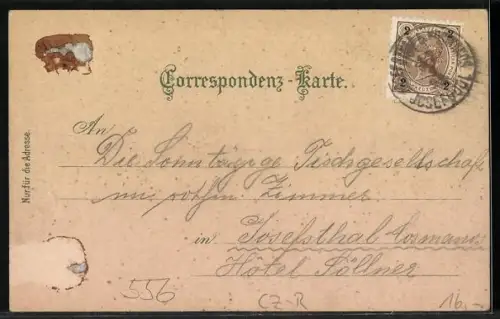 2
2 2
Correspondenz-Karte.
Nur für die Adresse.
An
Die Sonntägige Tischgesellschaft
im rothen Zimmer
in Josefsthal Cosmanos
Hôtel Föllner
556
CZ-R
16,-